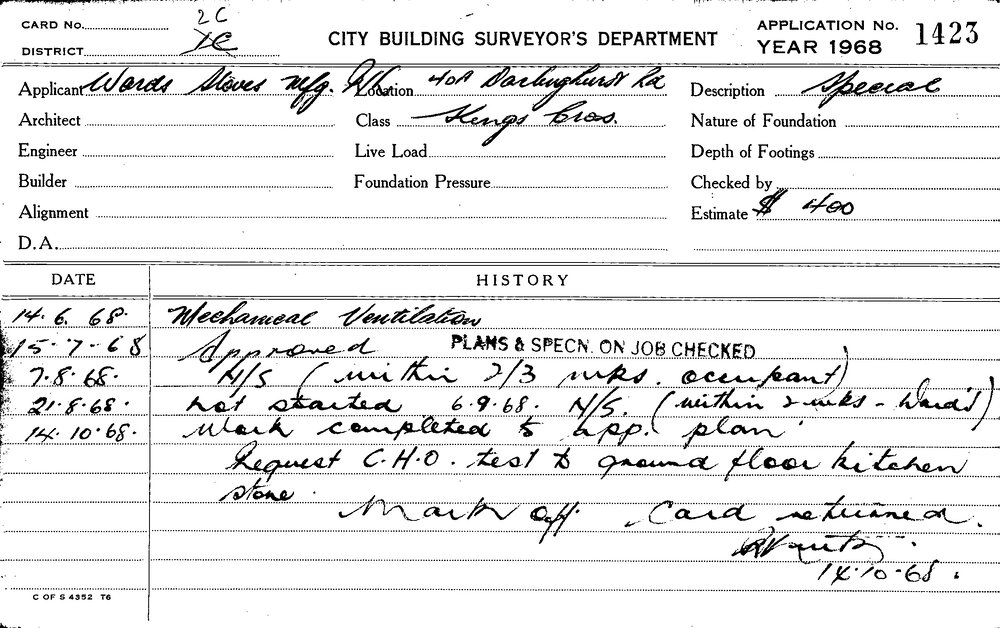 CARD No. 2C
DISTRICT 1C
CITY BUILDING SURVEYOR'S DEPARTMENT
APPLICATION No. 1423
YEAR 1968
Applicant Wards Stoves Mfg. P/L Location 40A Darlinghurst Rd Description Special
Architect Class Kings Cros. Nature of Foundation
Engineer Live Load Depth of Footings
Builder Foundation Pressure Checked by
Alignment Estimate $ 400
D.A.
DATE HISTORY
14.6.68. Mechanical Ventilation
15-7-68 Approved PLANS & SPECN. ON JOB CHECKED
7.8.68. N/S (within 2/3 wks. occupant)
21.8.68. Not started 6.9.68. N/S. (within 2 wks - Wards)
14.10.68. Work completed to app. plan
Request C.H.O. test to ground floor kitchen
stove.
Mark off. Card returned.
14.10.68.
C OF S 4352 T6